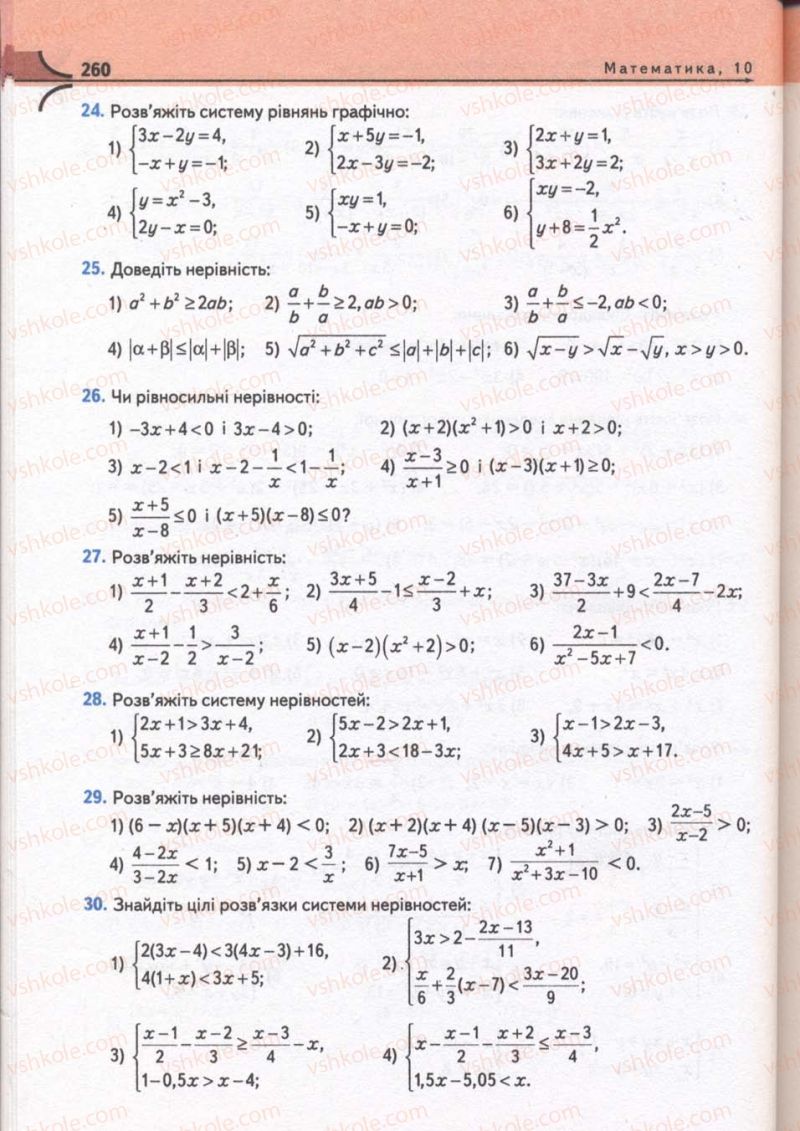 260 Математика, 10
24. Розв'яжіть систему рівнянь графічно:
1) {3x−2y=4, −x+y=−1; 2) {x+5y=−1, 2x−3y=−2; 3) {2x+y=1, 3x+2y=2;
4) {y=x²−3, 2y−x=0; 5) {xy=1, −x+y=0; 6) {xy=−2, y+8=1/2 x².
25. Доведіть нерівність:
1) a²+b²≥2ab; 2) a/b+b/a≥2, ab>0; 3) a/b+b/a≤−2, ab<0;
4) |α+β|≤|α|+|β|; 5) √(a²+b²+c²)≤|a|+|b|+|c|; 6) √(x−y)>√x−√y, x>y>0.
26. Чи рівносильні нерівності:
1) −3x+4<0 і 3x−4>0; 2) (x+2)(x²+1)>0 і x+2>0;
3) x−2<1 і x−2−1/x<1−1/x; 4) (x−3)/(x+1)≥0 і (x−3)(x+1)≥0;
5) (x+5)/(x−8)≤0 і (x+5)(x−8)≤0?
27. Розв'яжіть нерівність:
1) (x+1)/2−(x+2)/3<2+x/6; 2) (3x+5)/4−1≤(x−2)/3+x; 3) (37−3x)/2+9<(2x−7)/4−2x;
4) (x+1)/(x−2)−1/2>3/(x−2); 5) (x−2)(x²+2)>0; 6) (2x−1)/(x²−5x+7)<0.
28. Розв'яжіть систему нерівностей:
1) {2x+1>3x+4, 5x+3≥8x+21; 2) {5x−2>2x+1, 2x+3<18−3x; 3) {x−1>2x−3, 4x+5>x+17.
29. Розв'яжіть нерівність:
1) (6 − x)(x + 5)(x + 4) < 0; 2) (x + 2)(x + 4) (x − 5)(x − 3) > 0; 3) (2x−5)/(x−2) > 0;
4) (4−2x)/(3−2x) < 1; 5) x − 2 < 3/x; 6) (7x−5)/(x+1) > x; 7) (x²+1)/(x²+3x−10) < 0.
30. Знайдіть цілі розв'язки системи нерівностей:
1) {2(3x−4)<3(4x−3)+16, 4(1+x)<3x+5; 2) {3x>2−(2x−13)/11, x/6+2/3(x−7)<(3x−20)/9;
3) {(x−1)/2−(x−2)/3≥(x−3)/4−x, 1−0,5x>x−4; 4) {x−(x−1)/2−(x+2)/3≤(x−3)/4, 1,5x−5,05<x.